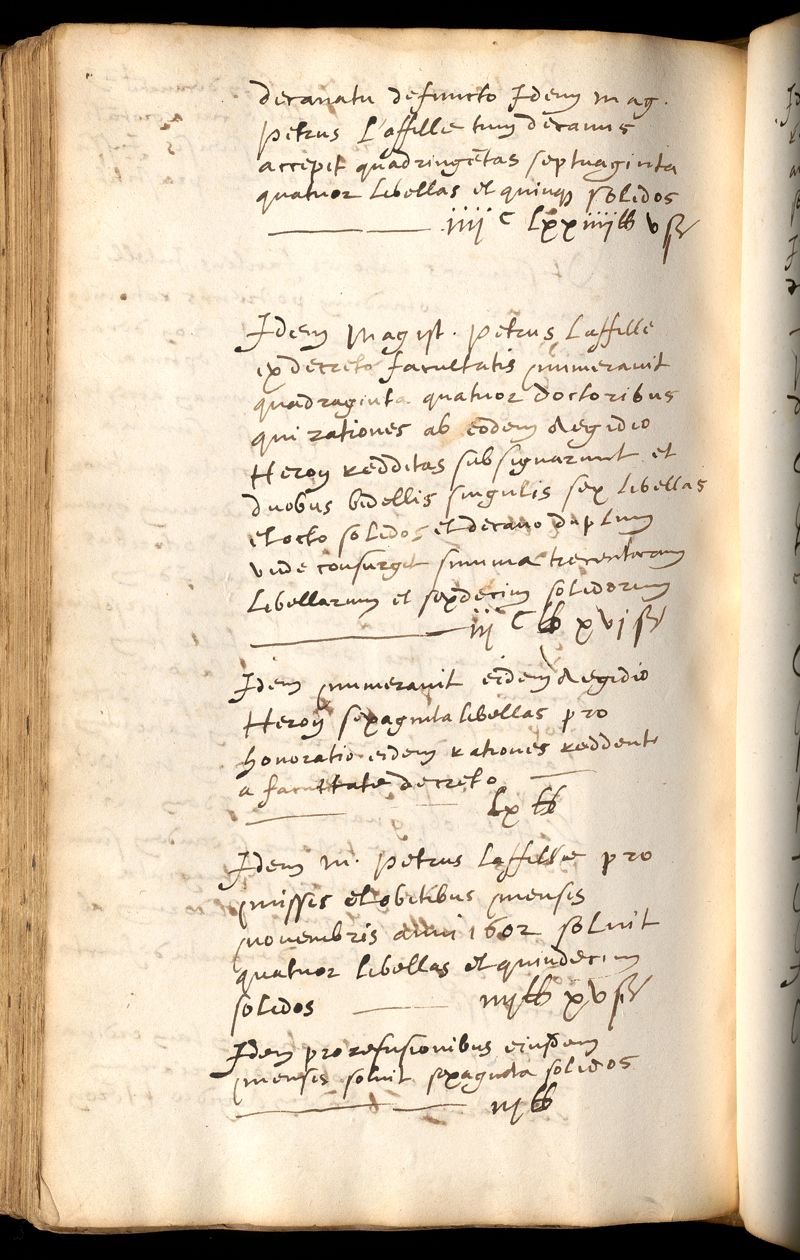 decanatu defuncto Idem mag.
Petrus L'affille tum decanus
accepit quadringētas septuaginta
quatuor libellas et quinqȝ solidos
iiii c lxxiiii lb v s
Idem Magist. Petrus Laffille
ex decreto facultatis numeravit
quadraginta quatuor doctoribus
qui rationes ab eodem Aegidio
Heron redditas subsignarunt et
duobus bidellis singulis sex libellas
et octo solidos et decano duplum
unde consurgit summa trecentarum
libellarum et sexdecim solidorum
iij c lb xvj s
Idem numeravit eidem Aegidio
Heron sexaginta libellas pro
honoratio eidem rationes reddenti
a facultate decreto
lx lb
Idem m. Petrus Laffille pro
missis et obitibus mensis
novembris anni 1602 solvit
quatuor libellas et quindecim
solidos iiij lb xv s
Idem pro refusionibus eiusdem
mensis solvit sexaginta solidos
iij lb